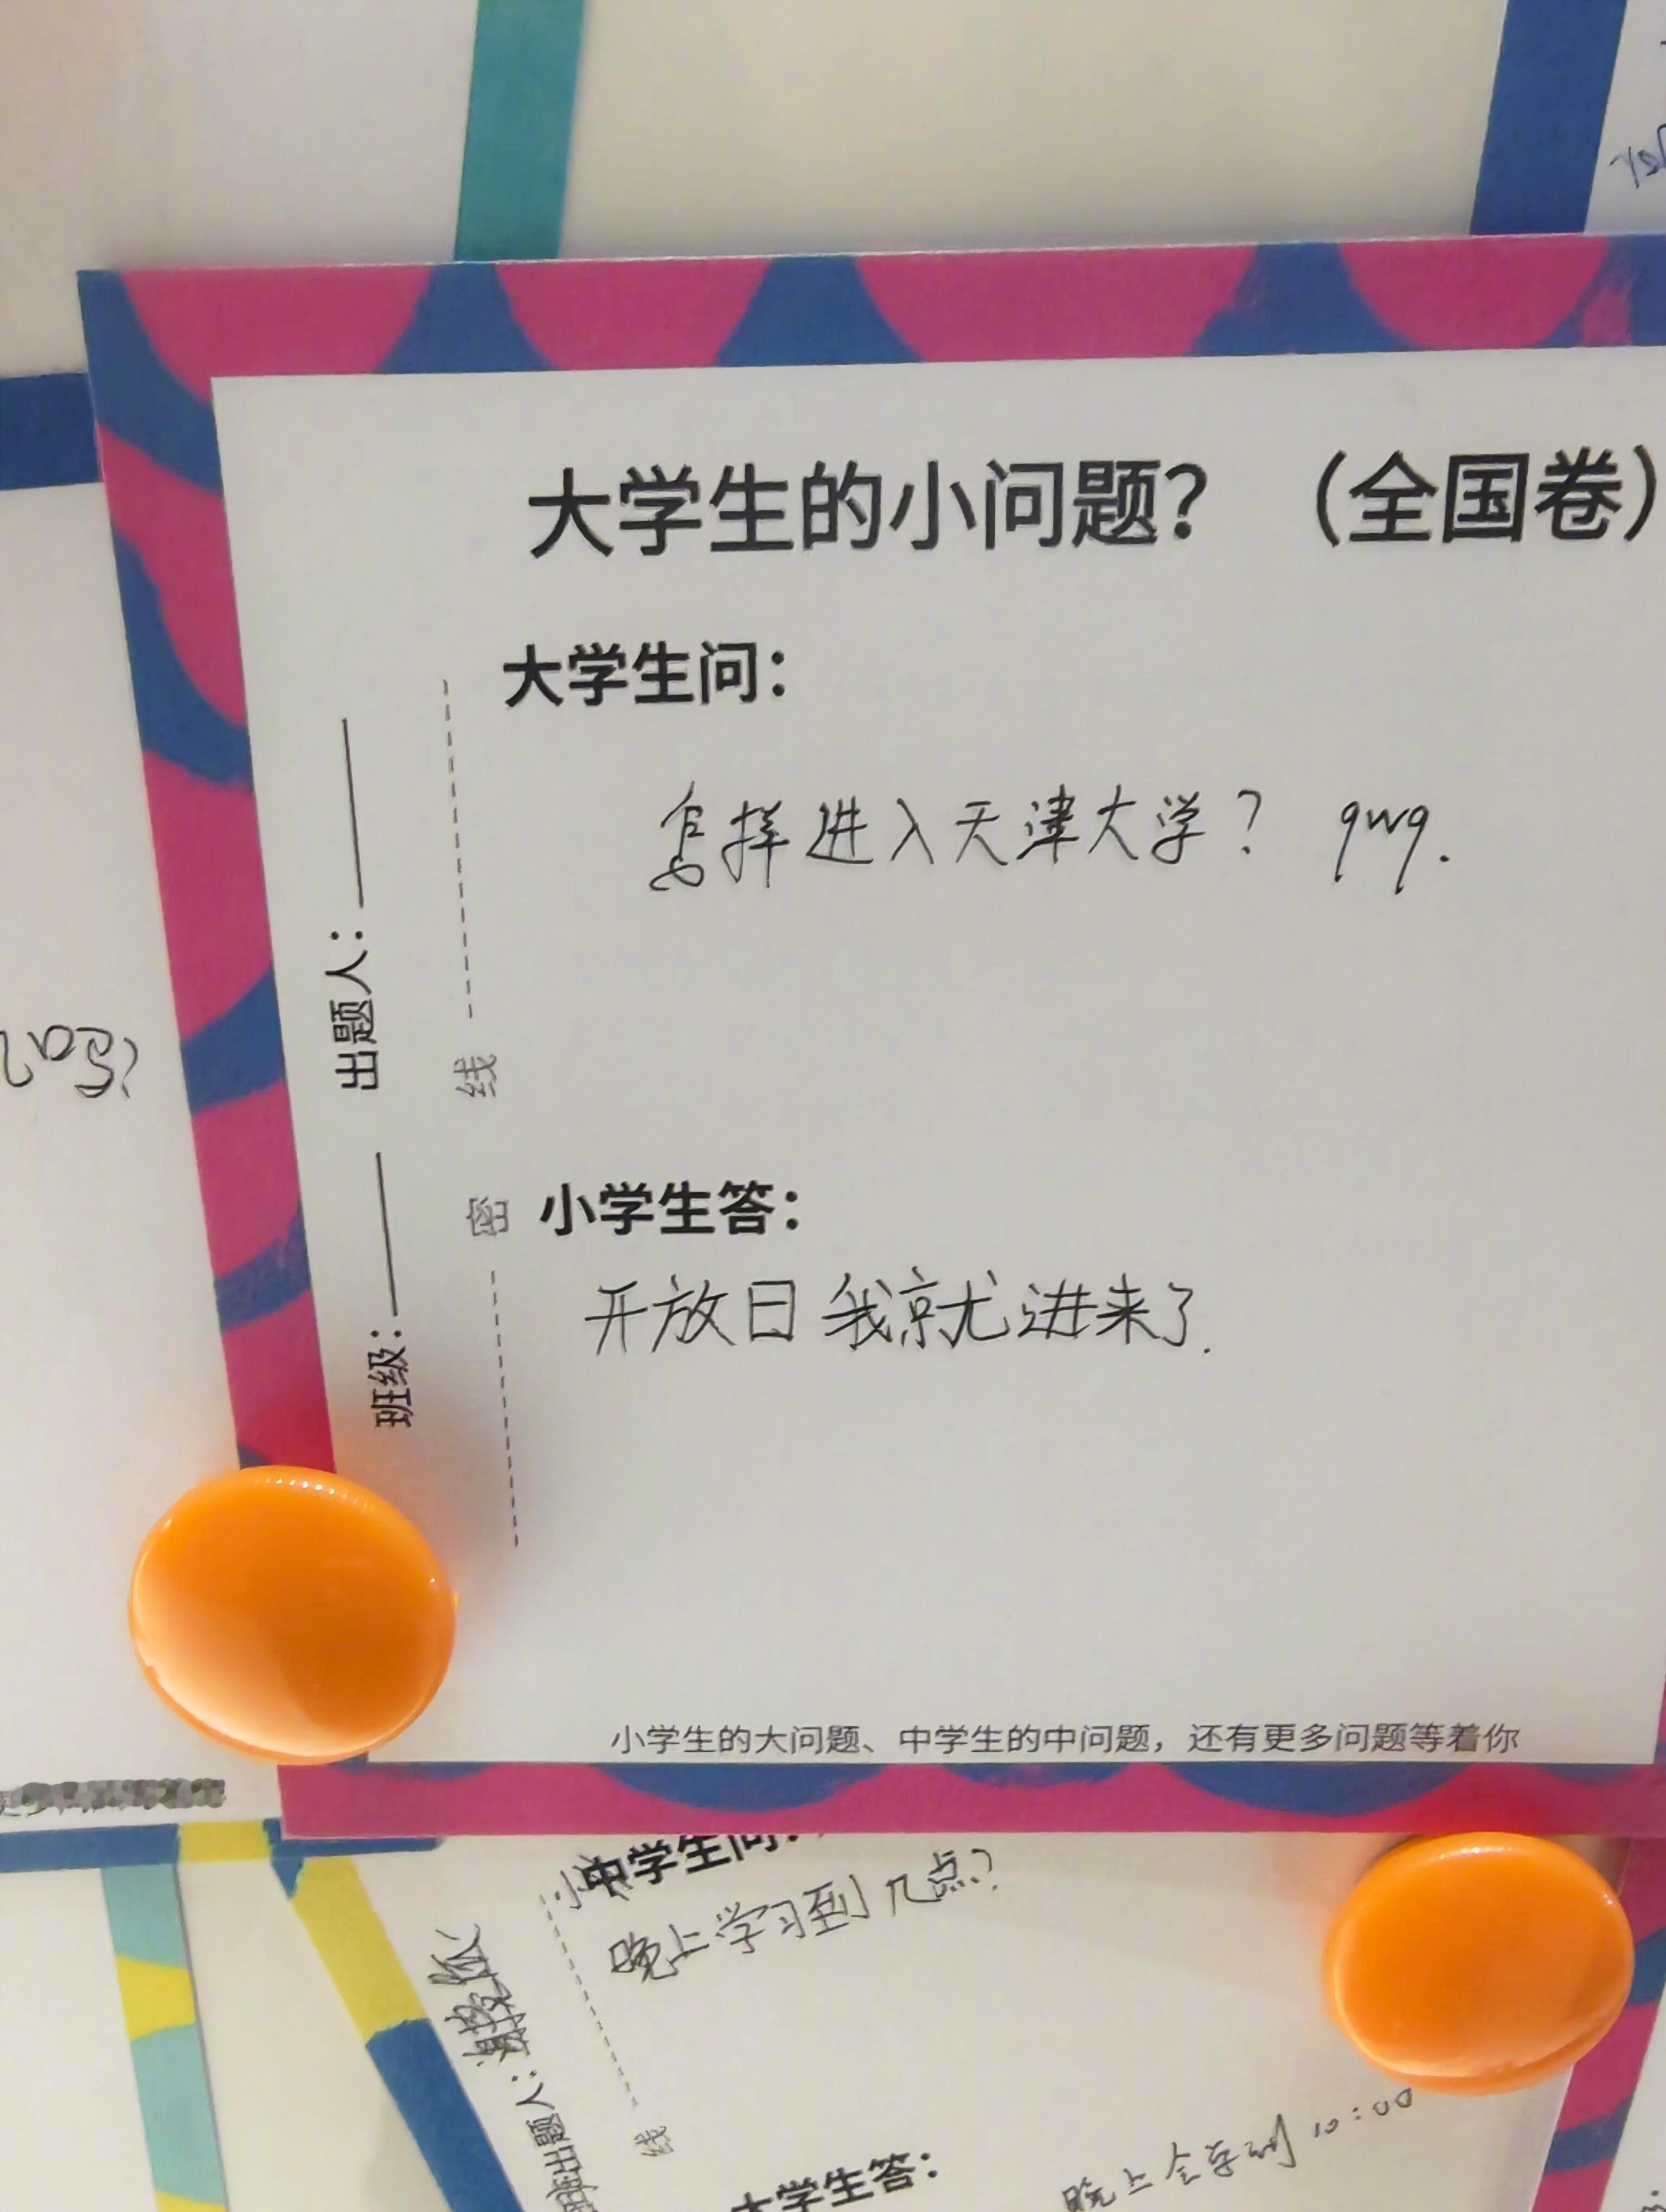 大学生的小问题？（全国卷）
大学生问：
怎样进入天津大学？ qwq.
出题人：
班级：
线
密
小学生答：
开放日我就进来了.
小学生的大问题、中学生的中问题，还有更多问题等着你
中学生问：
晚上学习到几点？
出题人：
线
大学生答：
晚上会学到10:00